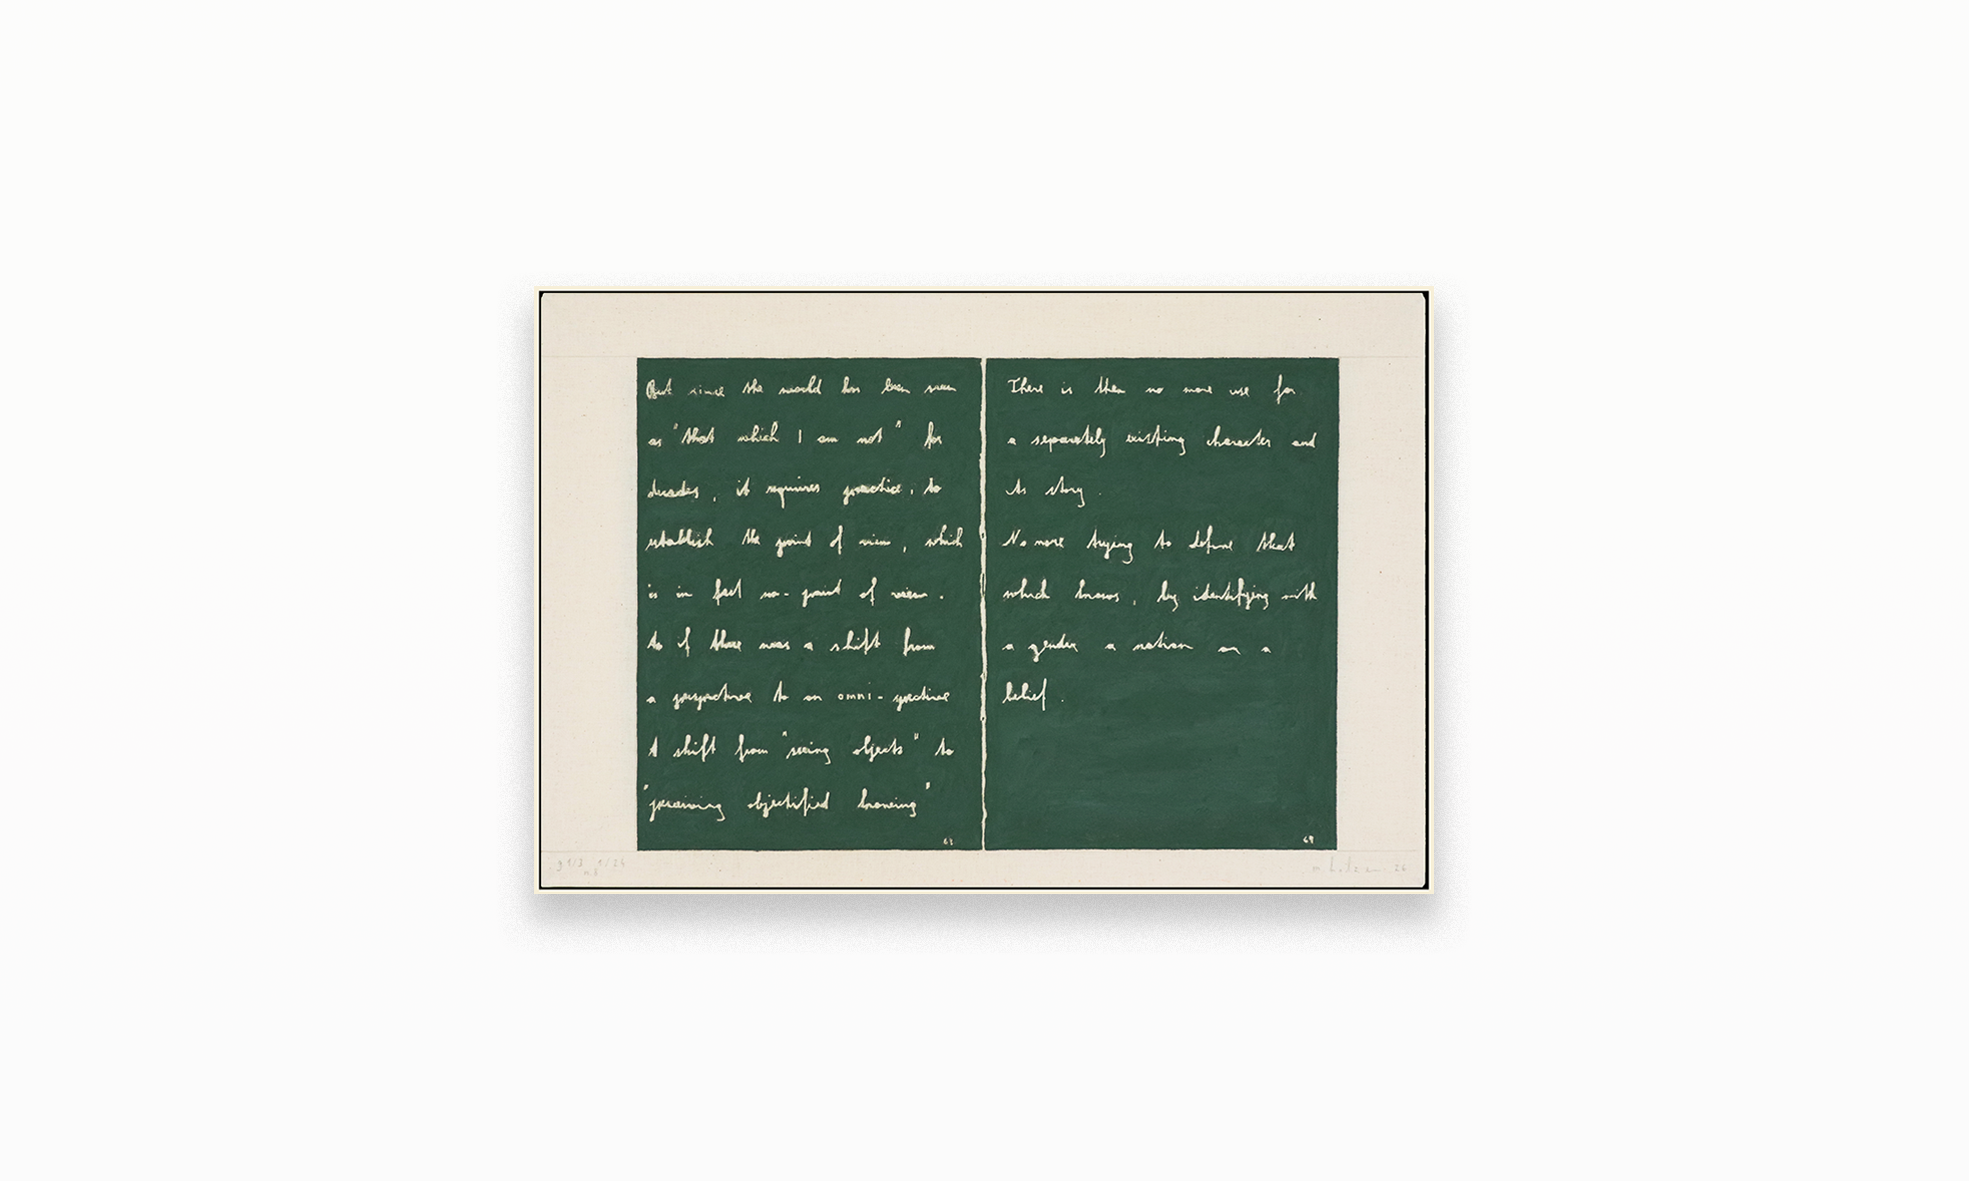 But since the world has been seen
as "that which I am not" for
decades, it requires practice, to
establish the point of view, which
is in fact no-point of view.
As if there was a shift from
a perspective to an omni-spective
A shift from "seeing objects" to
"perceiving objectified knowing"
63
There is then no more use for
a separately existing character and
its story.
No more trying to define that
which knows, by identifying with
a gender a nation or a
belief.
64